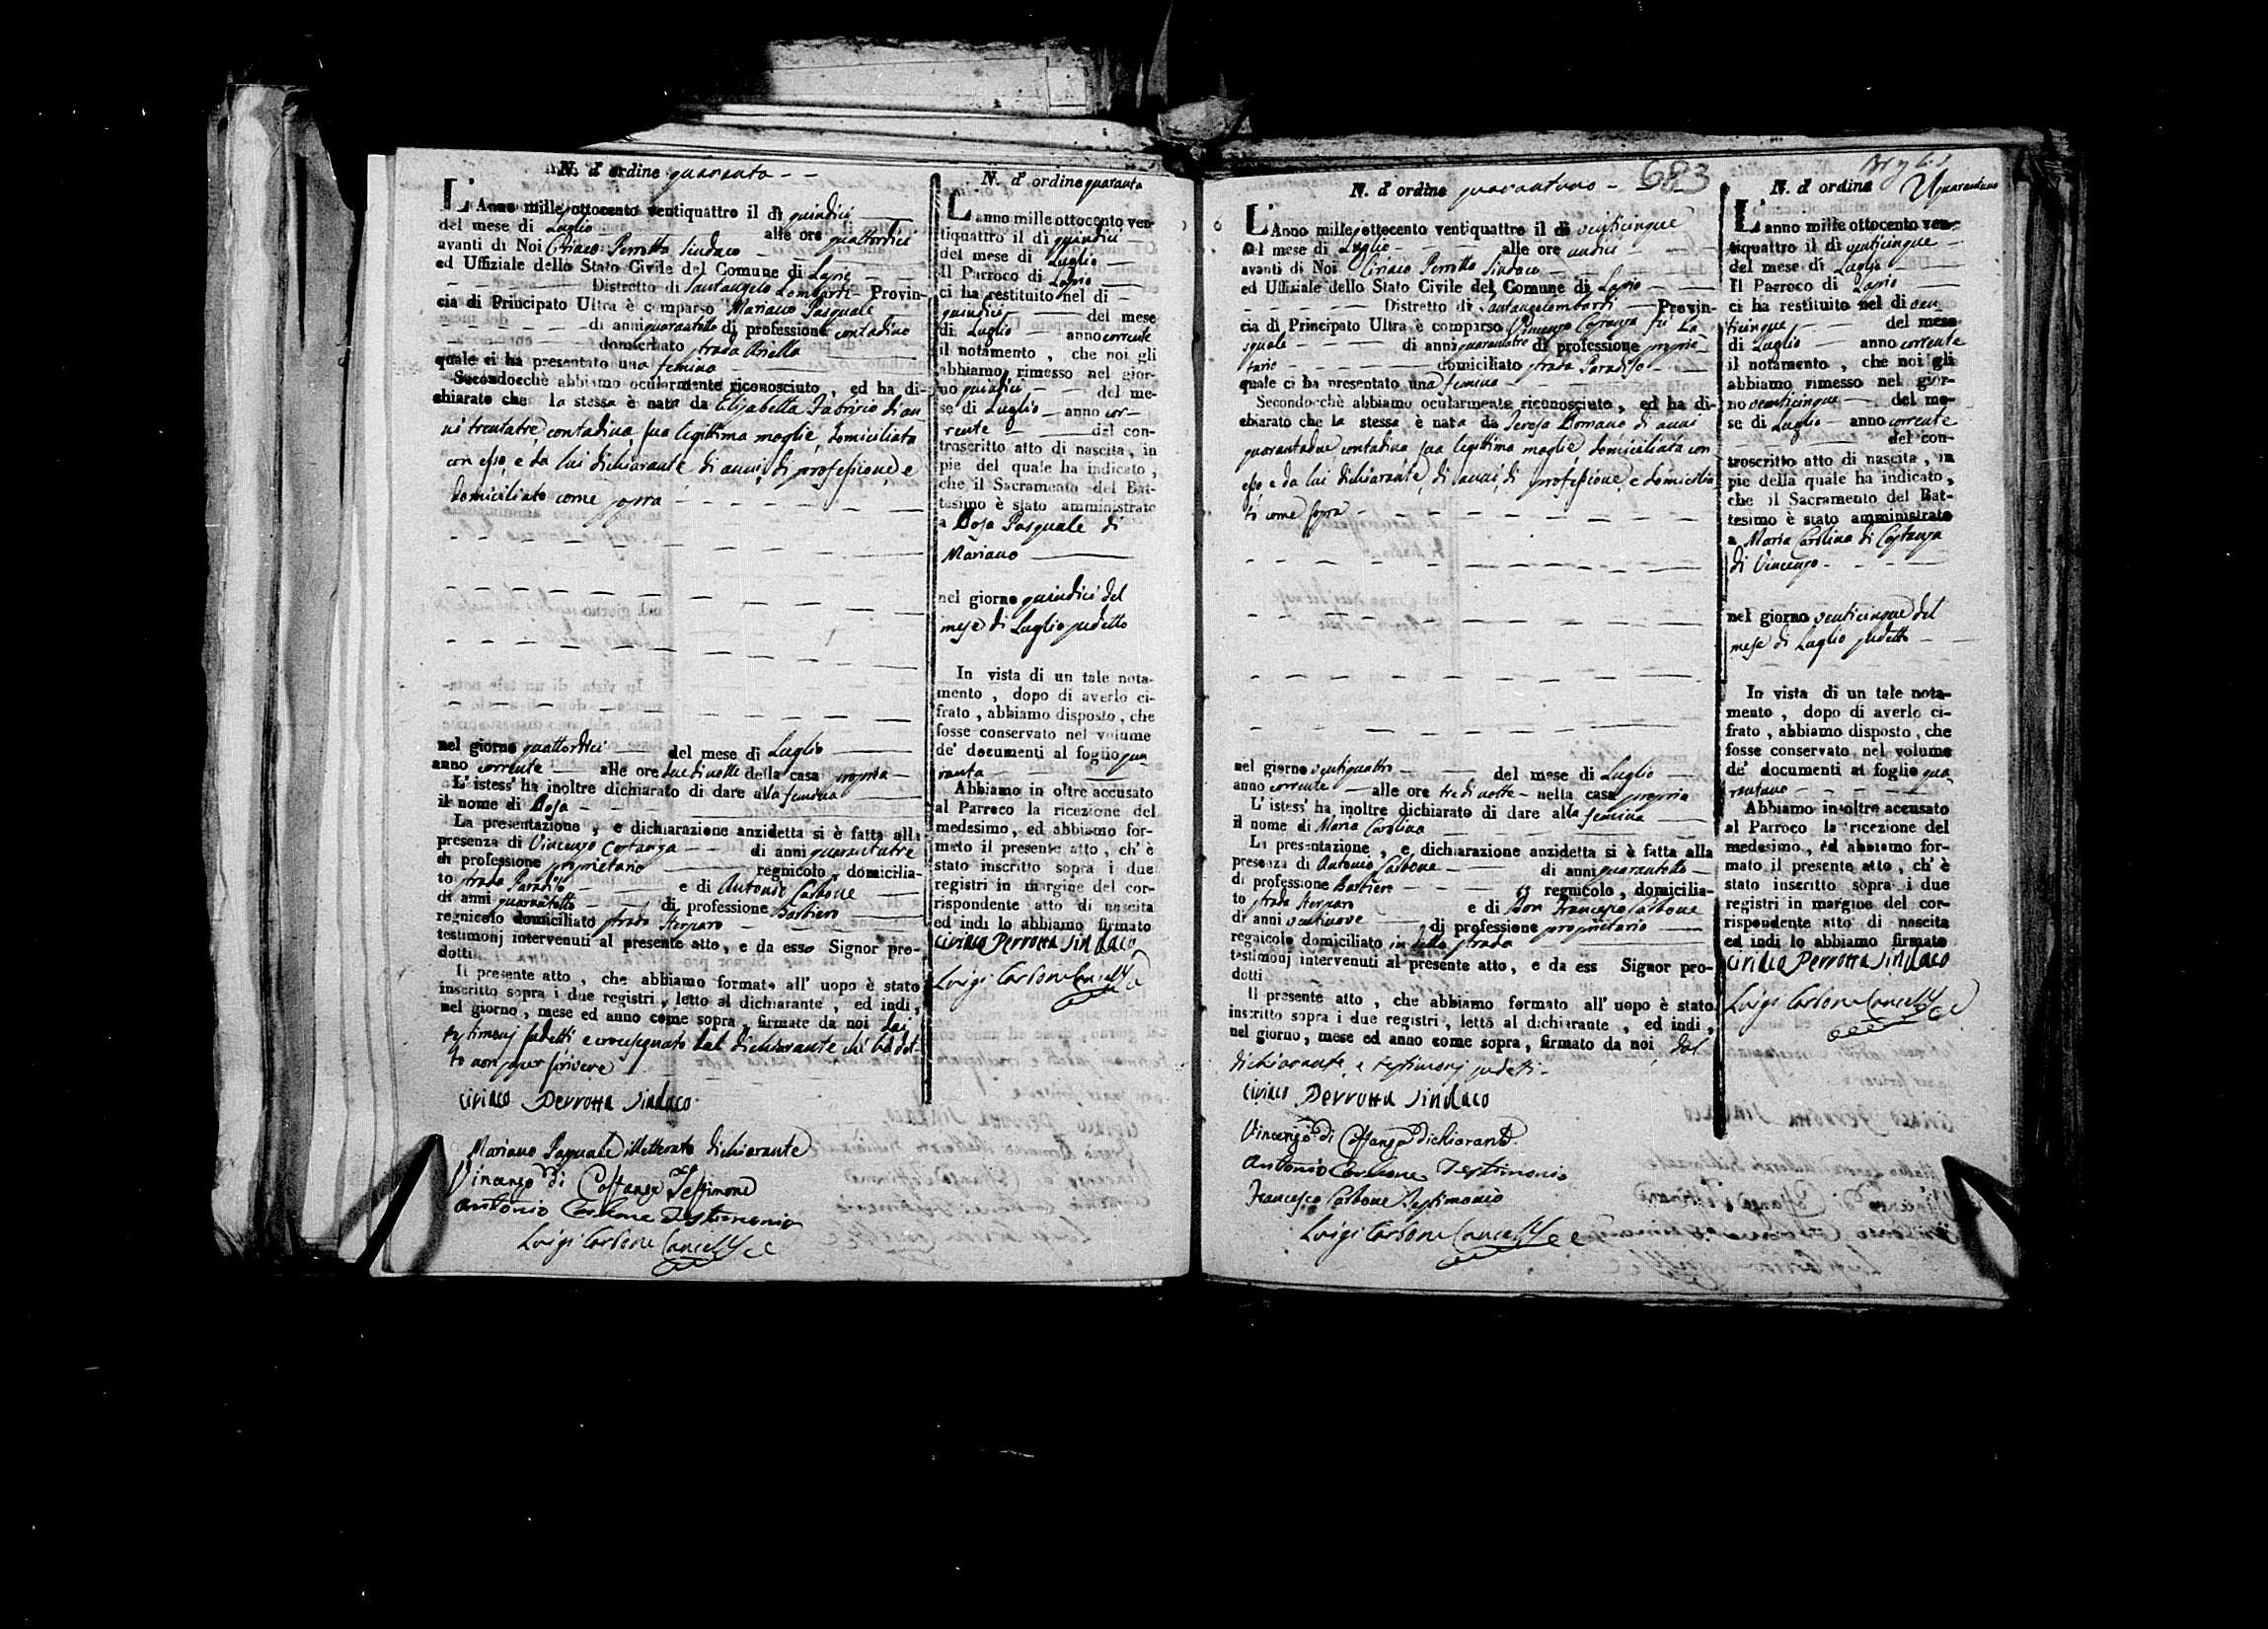 N. d' ordine quaranta
L'Anno mille ottocento ventiquattro il dì quindici
del mese di Luglio alle ore quattordici
avanti di Noi Ciriaco Perrotta Sindaco
ed Uffiziale dello Stato Civile del Comune di Lapio
Distretto di Santangelo Lombardi Provin-
cia di Principato Ultra è comparso Mariano Pasquale
di anni quarantotto di professione contadino
domiciliato strada Ariella
quale ci ha presentato una femina
Secondocchè abbiamo ocularmente riconosciuto, ed ha di-
chiarato che la stessa è nata da Elisabetta Fabrizio di an
ni trentatre contadina sua legittima moglie domiciliata
con esso, e da lui dichiarante di anni, di professione, e
domiciliato come sopra
nel giorno quattordici del mese di Luglio
anno corrente alle ore due di notte della casa propria
L'istess' ha inoltre dichiarato di dare alla femina
il nome di Rosa
La presentazione, e dichiarazione anzidetta si è fatta alla
presenza di Vincenzo Costanza di anni quarantatre
di professione proprietario regnicolo, domicilia-
to strada Paradiso e di Antonio Carbone
di anni quarantotto di professione Barbiero
regnicolo domiciliato strada Sterparo
testimonj intervenuti al presente atto, e da esso Signor pro-
dotti
Il presente atto, che abbiamo formato all' uopo è stato
inscritto sopra i due registri, letto al dichiarante, ed indi,
nel giorno, mese ed anno come sopra, firmato da noi dai
testimonj sudetti e crocesegnato dal dichiarante chi ha det-
to non saper scrivere
Ciriaco Perrotta Sindaco
Mariano Pasquale illetterato dichiarante
Vincenzo di Costanza Testimone
Antonio Carbone Testimonio
Luigi Carbone Cancell.e
N. d' ordine quaranta
L'anno mille ottocento ven-
tiquattro il dì quindici
del mese di Luglio
Il Parroco di Lapio
ci ha restituito nel di
quindici del mese
di Luglio anno corrente
il notamento, che noi gli
abbiamo rimesso nel gior-
no quindici del me-
se di Luglio anno cor-
rente del con-
troscritto atto di nascita, in
pie del quale ha indicato,
che il Sacramento del Bat-
tesimo è stato amministrato
a Rosa Pasquale di
Mariano
nel giorno quindici del
mese di Luglio sudetto
In vista di un tale nota-
mento, dopo di averlo ci-
frato, abbiamo disposto, che
fosse conservato nel volume
de' documenti al foglio qua
ranta
Abbiamo in oltre accusato
al Parroco la ricezione del
medesimo, ed abbiamo for-
mato il presente atto, ch' è
stato inscritto sopra i due
registri in margine del cor-
rispondente atto di nascita
ed indi lo abbiamo firmato
Ciriaco Perrotta Sindaco
Luigi Carbone Cancell.e
683
N. d' ordine quarantuno
L'Anno mille ottocento ventiquattro il di venticinque
del mese di Luglio alle ore undici
avanti di Noi Ciriaco Perrotta Sindaco
ed Uffiziale dello Stato Civile del Comune di Lapio
Distretto di Santangelombardi Provin-
cia di Principato Ultra è comparso Vincenzo Costanza fu Pa
squale di anni quarantatre di professione proprie
tario domiciliato strada Paradiso
quale ci ha presentato una femina
Secondocchè abbiamo ocularmente riconosciuto, ed ha di-
chiarato che la stessa è nata da Teresa Romano di anni
quarantadue contadina sua legittima moglie domiciliata con
esso, e da lui dichiarante, di anni, di professione, e domicilia
to come sopra
nel giorno ventiquattro del mese di Luglio
anno corrente alle ore tre di notte nella casa propria
L' istess' ha inoltre dichiarato di dare alla femina
il nome di Maria Carolina
La presentazione, e dichiarazione anzidetta si è fatta alla
presenza di Antonio Carbone di anni quarantotto
di professione Barbiere regnicolo, domicilia-
to strada Sterparo e di Don Francesco Carbone
di anni ventinove di professione proprietario
regnicolo domiciliato in detta strada
testimonj intervenuti al presente atto, e da ess Signor pro-
dotti
Il presente atto, che abbiamo formato all' uopo è stato
inscritto sopra i due registri, letto al dichiarante, ed indi,
nel giorno, mese ed anno come sopra, firmato da noi dal
dichiarante, e testimonj sudetti
Ciriaco Perrotta Sindaco
Vincenzo di Costanza dichiarante
Antonio Carbone Testimonio
Francesco Carbone Testimonio
Luigi Carbone Cancell.e
N. d' ordine Quarantuno
L'anno mille ottocento ven-
tiquattro il di venticinque
del mese di Luglio
Il Parroco di Lapio
ci ha restituito nel di ven
ticinque del mese
di Luglio anno corrente
il notamento, che noi gli
abbiamo rimesso nel gior-
no venticinque del me-
se di Luglio anno corrente
del con-
troscritto atto di nascita, in
pie della quale ha indicato,
che il Sacramento del Bat-
tesimo è stato amministrato
a Maria Carolina di Costanza
di Vincenzo
nel giorno venticinque del
mese di Luglio sudetto
In vista di un tale nota-
mento, dopo di averlo ci-
frato, abbiamo disposto, che
fosse conservato nel volume
de' documenti al foglio qua
rantuno
Abbiamo insoltre accusato
al Parroco la ricezione del
medesimo, ed abbiamo for-
mato il presente atto, ch' è
stato inscritto sopra i due
registri in margine del cor-
rispondente atto di nascita
ed indi lo abbiamo firmato
Ciriaco Perrotta Sindaco
Luigi Carbone Cancell.e